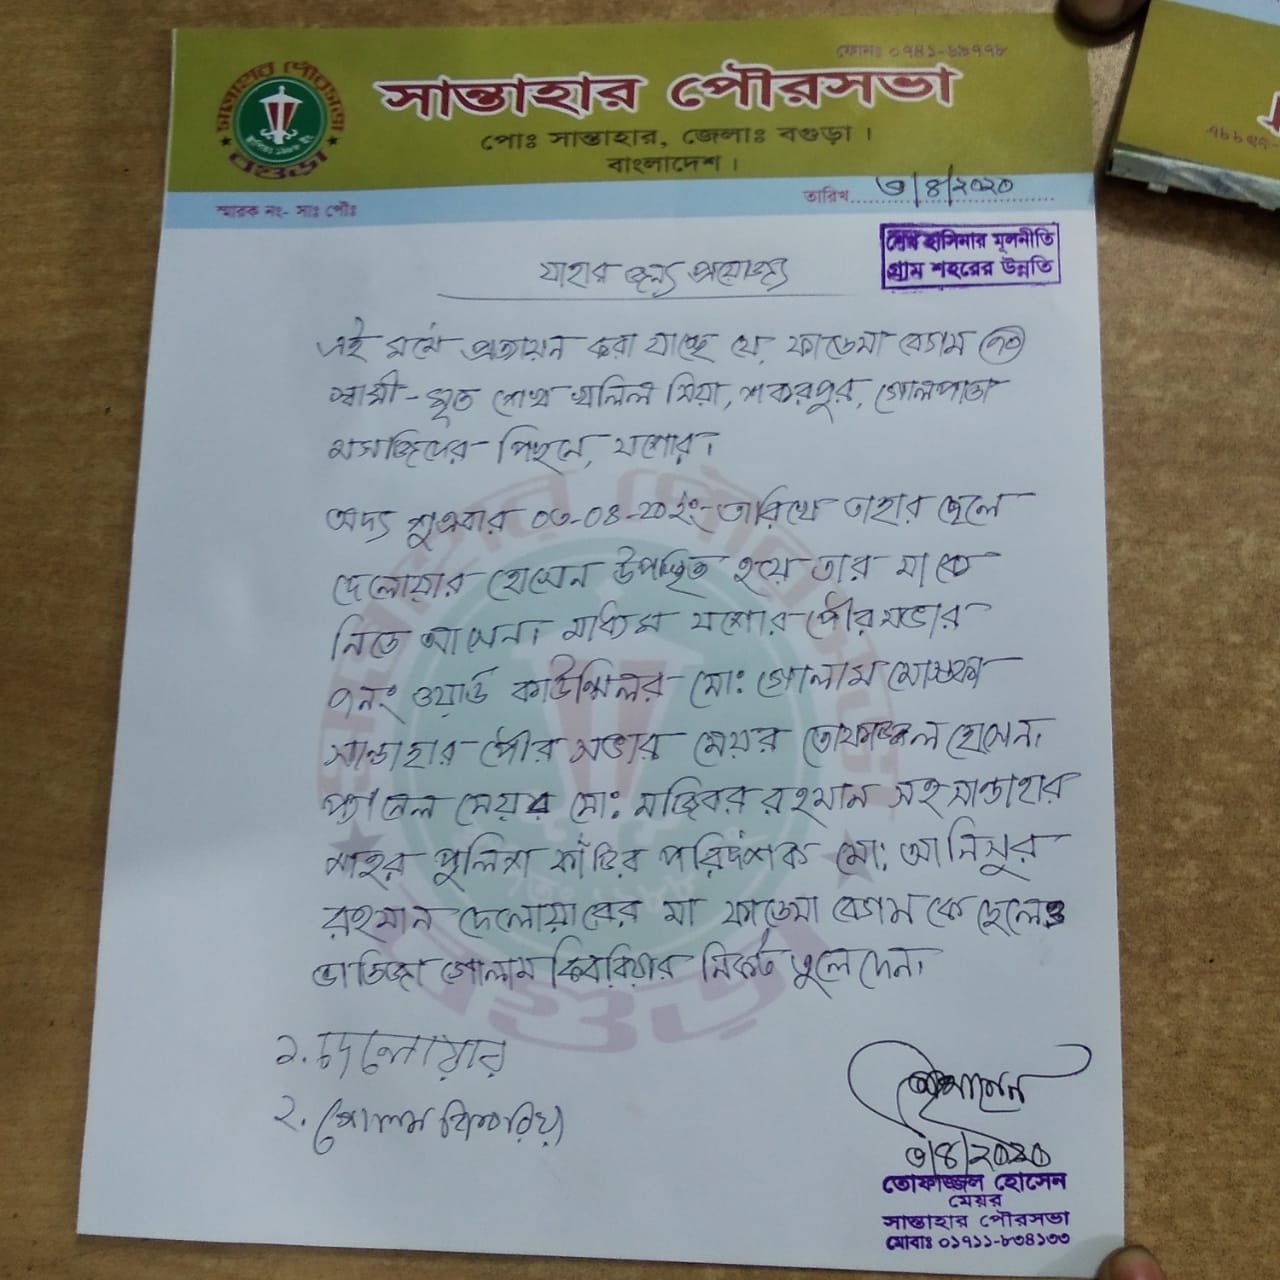 ফোনঃ ০৭৪১-৬৯৭৭৮
সান্তাহার পৌরসভা
পোঃ সান্তাহার, জেলাঃ বগুড়া ।
বাংলাদেশ ।
সান্তাহার পৌরসভা
বগুড়া
স্মারক নং- সাঃ পৌঃ
তারিখ ৩/৪/২০২০
শেখ হাসিনার মূলনীতি
গ্রাম শহরের উন্নতি
যাহার জন্য প্রযোজ্য
এই মর্মে প্রত্যয়ন করা যাচ্ছে যে, ফাতেমা বেগম
স্বামী- মৃত শেখ খলিল মিয়া, শংকরপুর, গোলপাতা
মসজিদের পিছনে, যশোর।
অদ্য শুক্রবার ০৩-০৪-২০ইং তারিখে তাহার ছেলে
দেলোয়ার হোসেন উপস্থিত হয়ে তার মাকে
নিতে আসেন। মাধ্যম যশোর পৌরসভার
৭নং ওয়ার্ড কাউন্সিলর মো: গোলাম মোস্তফা
সান্তাহার পৌর সভার মেয়র তোফাজ্জল হোসেন।
প্যানেল মেয়র মো: মজিবর রহমান সহ সান্তাহার
শহর পুলিশ ফাঁড়ির পরিদর্শক মো: আনিসুর
রহমান দেলোয়ারের মা ফাতেমা বেগম কে ছেলে ও
ভাতিজা গোলাম কিবরিয়ার নিকট তুলে দেন।
১. দেলোয়ার
২. গোলাম কিবরিয়া
৩/৪/২০২০
তোফাজ্জল হোসেন
মেয়র
সান্তাহার পৌরসভা
মোবাঃ ০১৭১১-৮৩৪১৩৩